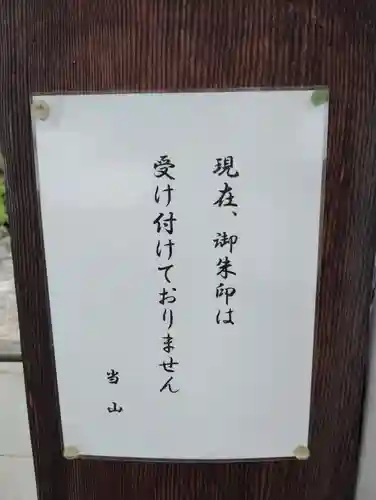 現在、御朱印は
受け付けておりません
当山